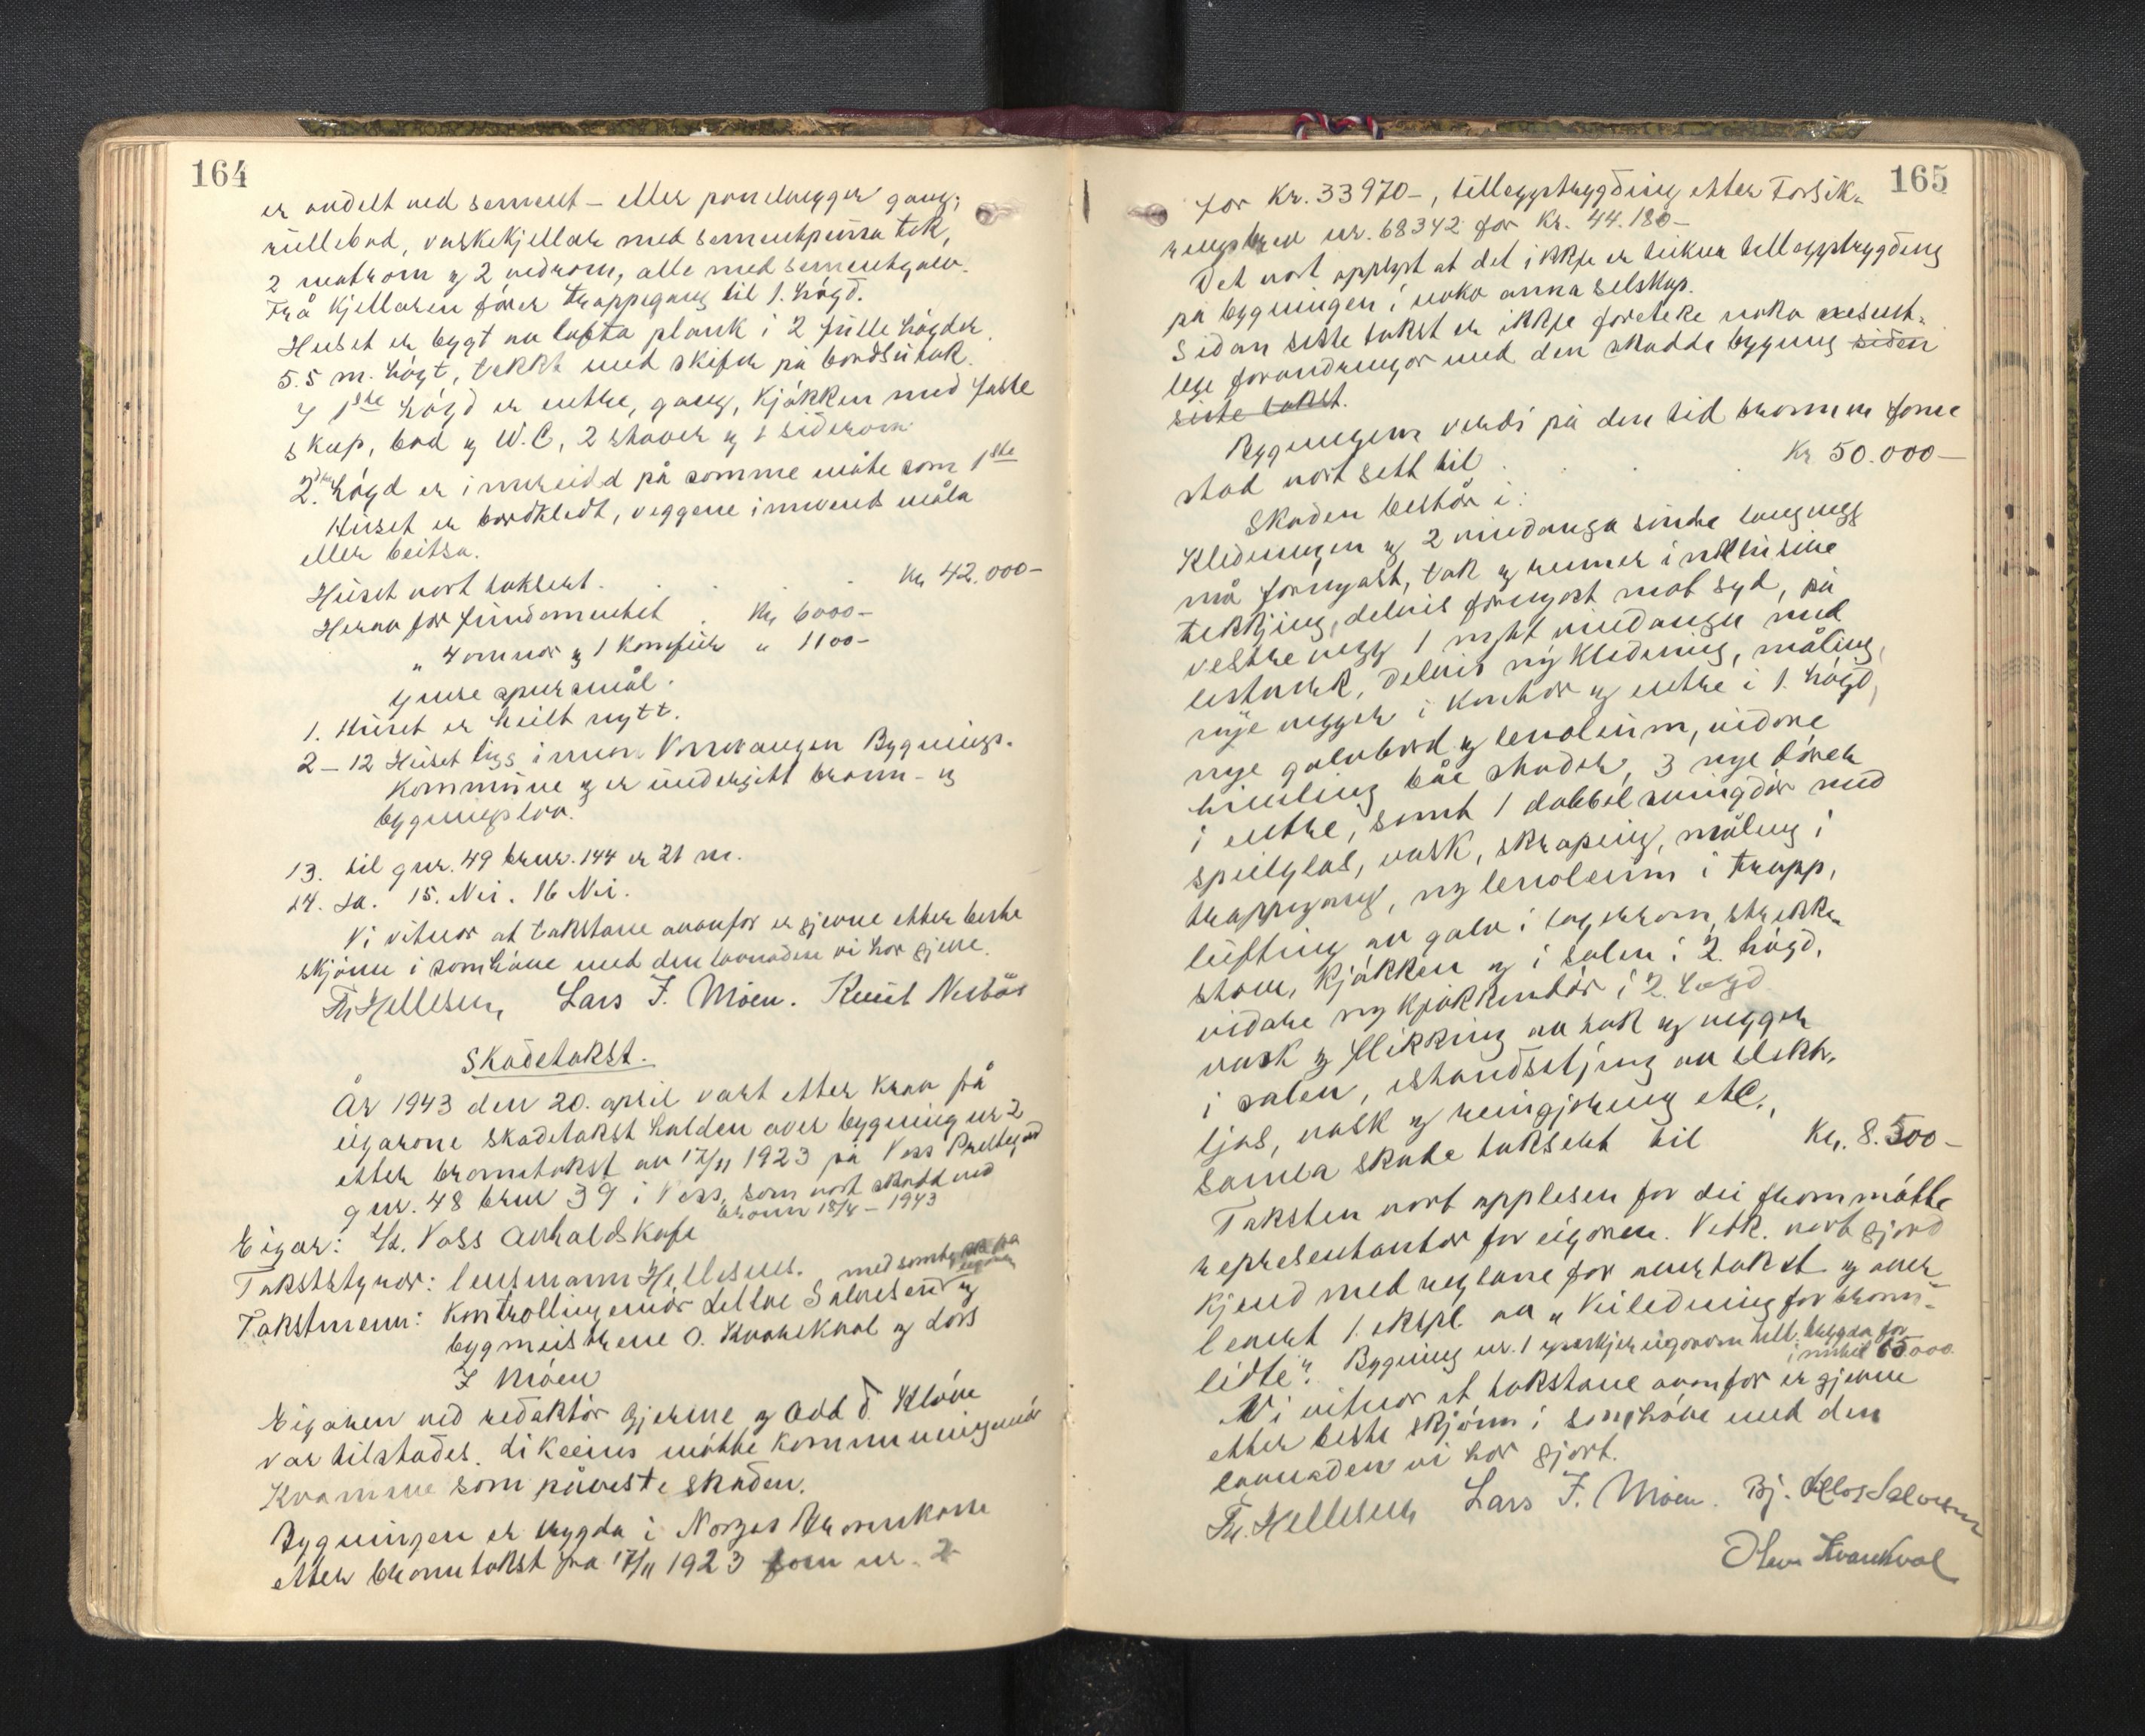 164
er avdelt ved sement- eller panelvegger gang,
rullebod, vaskekjellar med sementpussa tak,
2 matrom og 2 vedrom, alle med sementgolv.
Frå kjellaren förer trappegang til 1. högd.
Huset er bygt av lafta plank i 2 fulle högder
5.5 m. högt, tekkt med skifer på bordsutak.
I 1ste högd er entre, gang, kjökken med faste
skap, bad og W.C, 2 stover og 1 siderom
2. högd er innreidd på somme måte som 1ste
Huset er bordkledt, veggene innvends måla
eller beitsa.
Huset vart taksert . . . . Kr 42.000-
Herav for fundamentet . Kr 6000-
" 4 omnar og 1 komfur " 1100-
Ymse spursmål.
1. Huset er heilt nytt.
2-12 Huset ligg innom Vossevangen Bygnings-
kommune og er undergitt brann- og
bygningslov.
13. til gnr. 49 brnr. 144 er 21 m.
14. Ja. 15. Nei. 16 Nei.
Vi vitnar at takstane ovanfor er gjevne etter beste
skjönn i samhöve med den lovnaden vi har gjeve.
Th Hellesen, Lars J. Möen. Knut Nesbås
Skadetakst.
År 1943 den 20. april vart etter krav på
eigarane skadetakst halden over bygning nr 2
etter branntakst av 17/11 1923 på Voss Prestegard
gnr. 48 brnr 39 i Voss, som vart skadd ved
brann 18/4 - 1943
Eigar: Voss Avhaldskafe
Takststyrar: lensmann Hellesen. med samtykke fra
eigaren
Takstmenn: Kontrollingeniör Salvesen og
bygmeistrene O. Kvarekval og Lars
J Möen
Eigaren ved redaktör Gjerme og Odd Klöve
var tilstades. Likeeins mötte kommuneingeniör
Kvamme som påviste skaden.
Bygningen er trygda i Norges Brannkasse
etter branntakst fra 17/11 1923 som nr. 2
165
for Kr. 33970-, tilleggstrygding etter Forsik-
ringsbrev nr. 68342 for Kr. 44.180-
Det vart opplyst at det ikkje er teikna tilleggstrygding
på bygningen i noko anna selskap.
Sidan siste takst er ikkje foreteke noko vesent-
lege forandringar med den skadde bygning siden
siste takst.
Bygningens verdi på den tid brannen fann
stad vart sett til . . . Kr 50.000-
Skaden består i:
Kledningen og 2 vindauga söndre langvegg
må fornyast, tak og renner inklusive
tekking, delvis fornyast mot syd, på
vestre vegg 1 nytt vindauga med
listverk, delvis ny kledning, måling,
nye vegger i kontor og entre i 1. högd,
nye golvbord og lenoleum, vidare
himling båe stader, 3 nye dörer
i entre, samt 1 dobbel svingdör med
speilglas, vask, skraping, måling i
trappegang, ny lenoleum i trapp,
lufting av golv i lagerrom, strekk-
stove, kjökken og i salen i 2. högd,
vidare ny kjökkendör i 2. högd
vask og flikking av tak og vegger
i salen, istandsetjing av elektr.
ljos, vask og reingjering etc.,
Samla skade taksert til Kr. 8.500-
Taksten vart opplesen for dei frammötte
representantar for eigaren. Vedk. vart gjord
kjend med reglane for overtakst og over-
levert 1. ekspl. av "Veiledning for brann-
lidte". Bygning nr. 1
65000.
Vi vitnar at takstane ovanfor er gjevne
etter beste skjönn i samhöve med den
lovnaden vi har gjort.
Th. Hellesen, Lars J. Möen. Bj. Salvesen
Olav Kvarekval